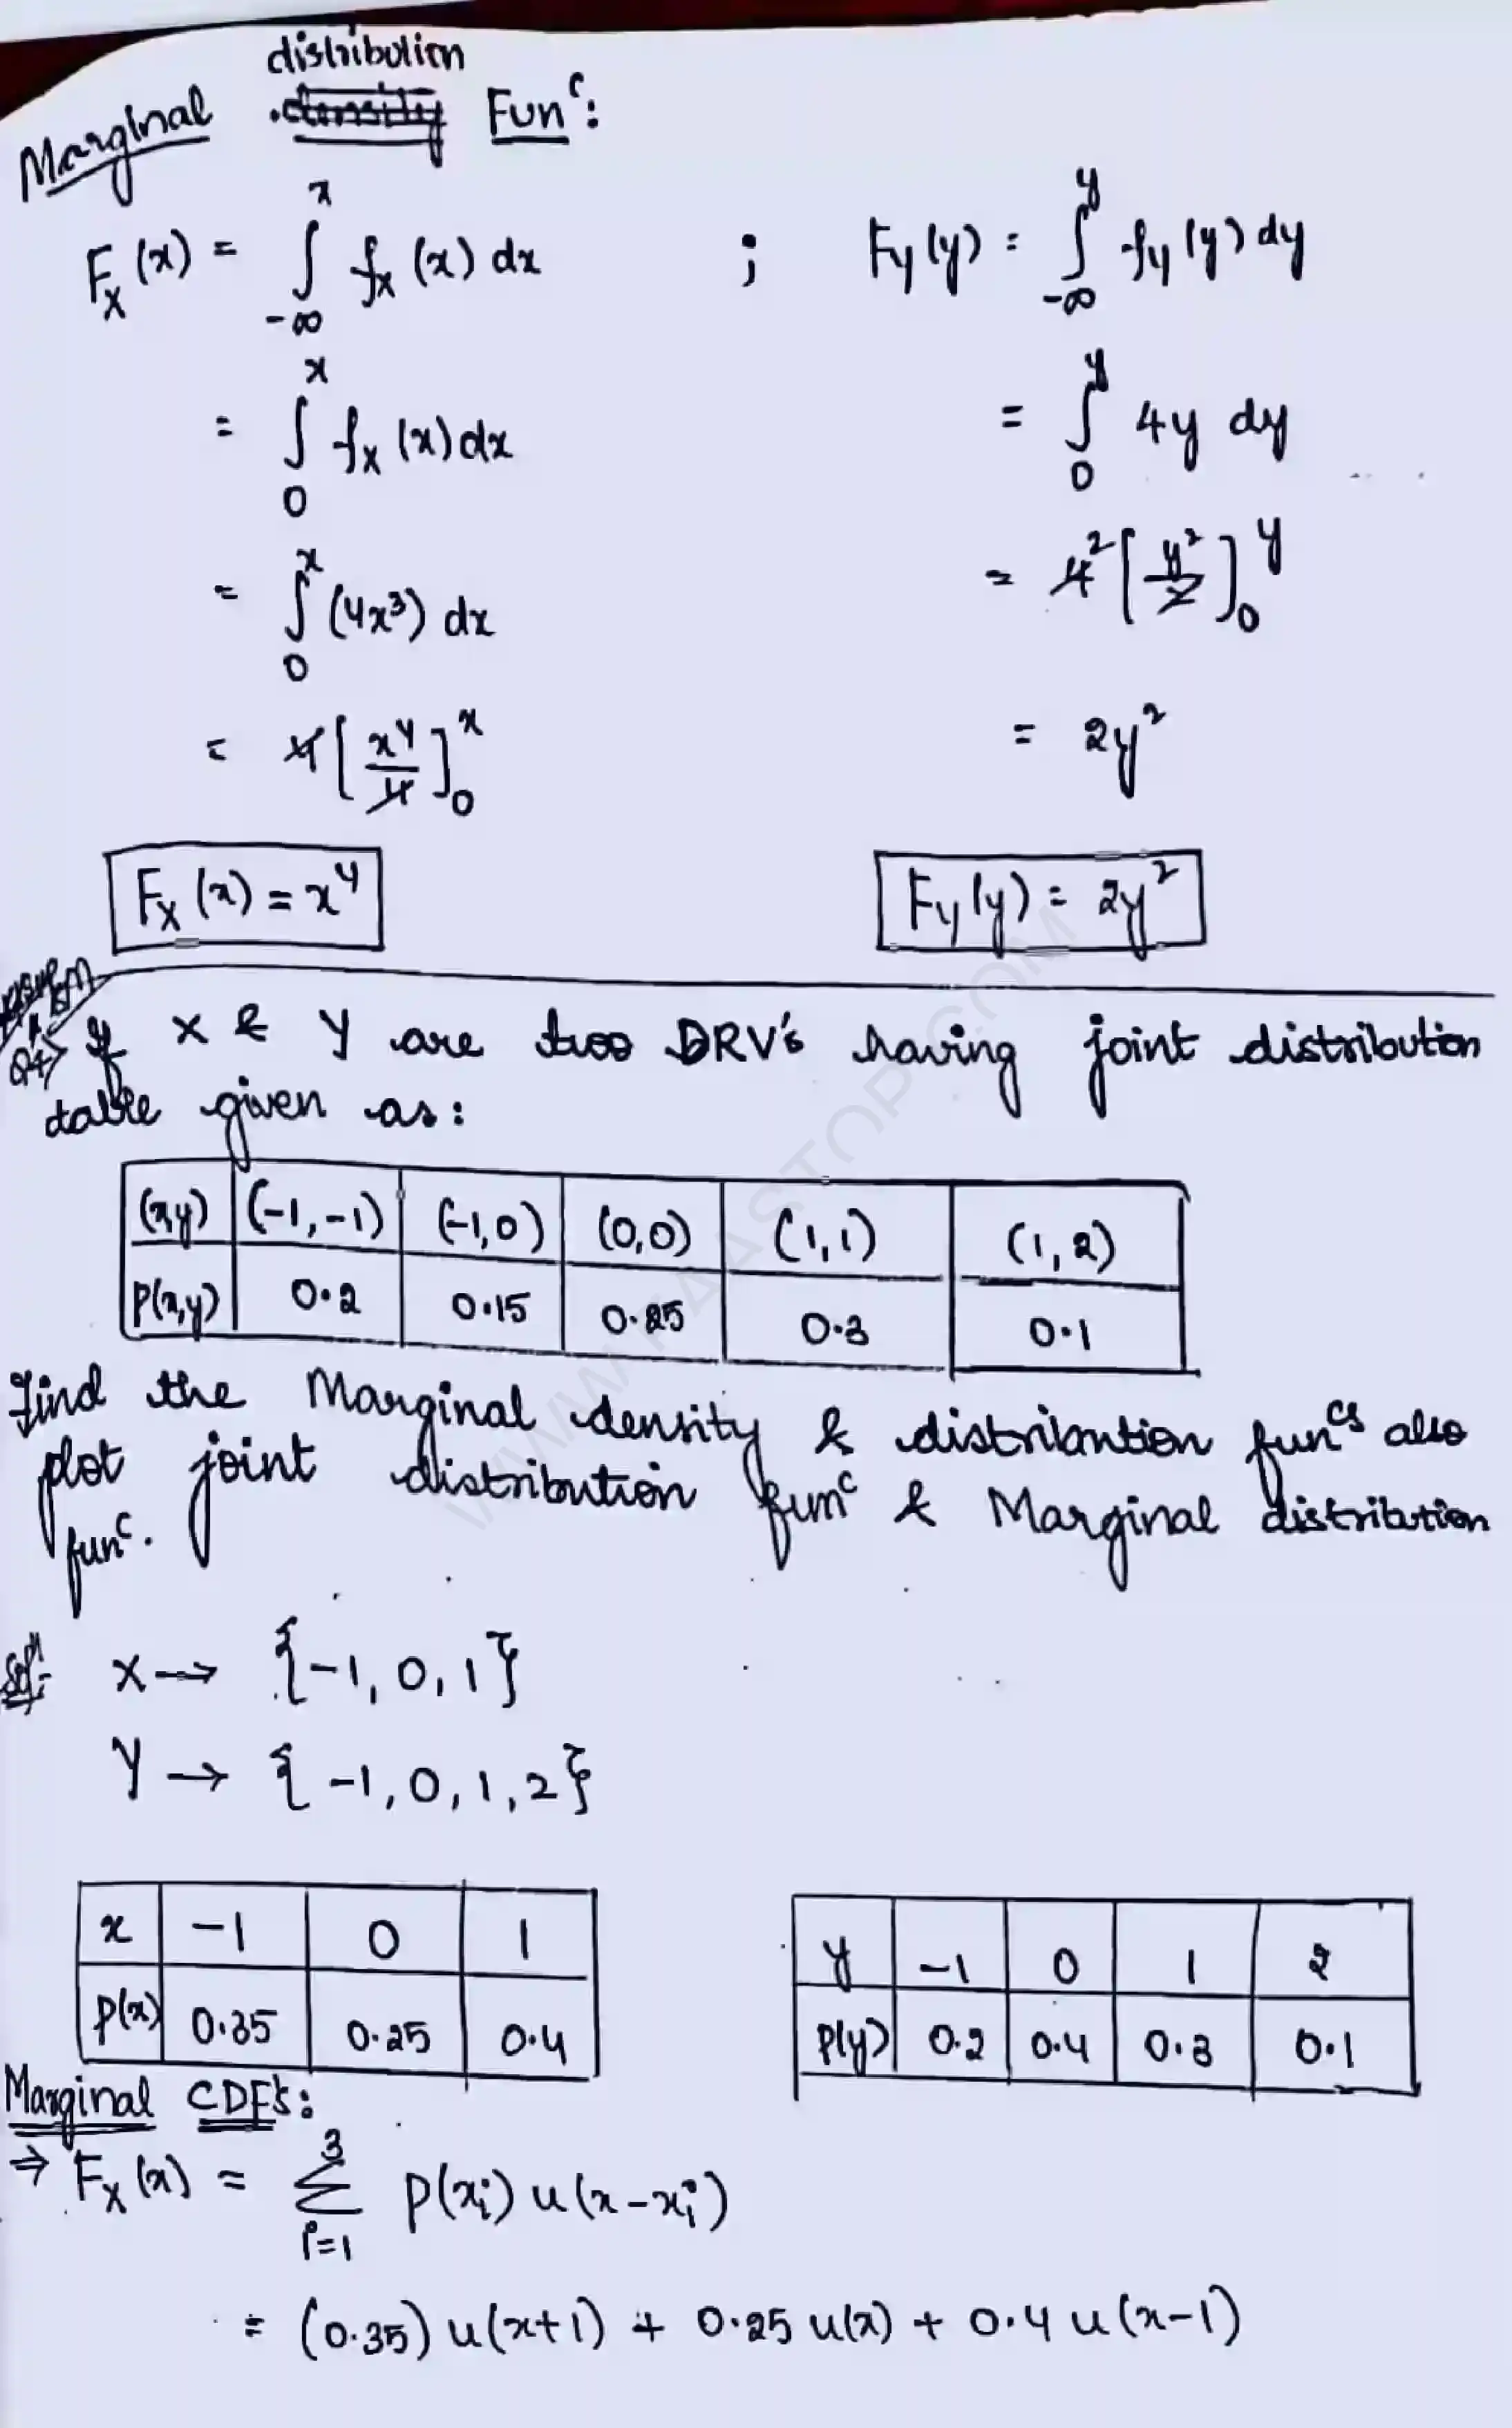 distribution
Marginal Func:
F_X(x) = ∫_{-∞}^{x} f_X(x) dx ; F_y(y) = ∫_{-∞}^{y} f_y(y) dy
= ∫_{0}^{x} f_X(x) dx = ∫_{0}^{y} 4y dy
= ∫_{0}^{x} (4x³) dx = 4² [y²/2]_{0}^{y}
= 4 [x⁴/4]_{0}^{x} = 2y²
F_X(x) = x⁴ F_y(y) = 2y²
If X & Y are two DRV's having joint distribution
table given as:
(x,y) (-1,-1) (-1,0) (0,0) (1,1) (1,2)
P(x,y) 0.2 0.15 0.25 0.3 0.1
find the Marginal density & distribution funcs also
plot joint distribution func & Marginal distribution
func.
Sol: X → {-1, 0, 1}
Y → {-1, 0, 1, 2}
x -1 0 1
P(x) 0.35 0.25 0.4
y -1 0 1 2
P(y) 0.2 0.4 0.3 0.1
Marginal CDF's:
⇒ F_X(x) = Σ_{i=1}^{3} P(x_i) u(x-x_i)
= (0.35) u(x+1) + 0.25 u(x) + 0.4 u(x-1)